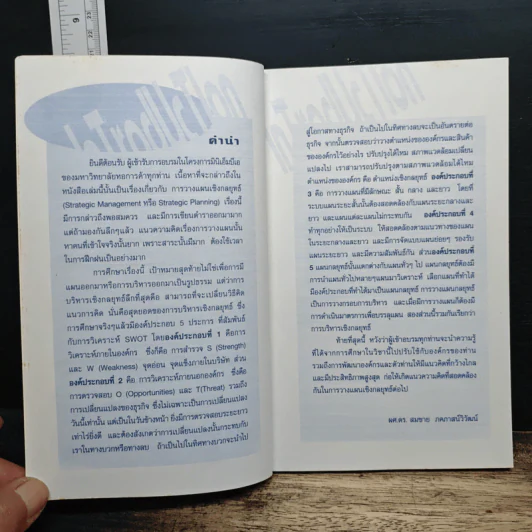 คำนำ
ยินดีต้อนรับ ผู้เข้ารับการอบรมในโครงการมินิเอ็มบีเอ
ของมหาวิทยาลัยหอการค้าทุกท่าน เนื้อหาที่จะกล่าวถึงใน
หนังสือเล่มนี้นั้นเป็นเรื่องเกี่ยวกับ การวางแผนเชิงกลยุทธ์
(Strategic Management หรือ Strategic Planning) เรื่องนี้
มีการกล่าวถึงพอสมควร และมีการเขียนตำราออกมามาก
แต่ถ้ามองกันลึกๆแล้ว แนวความคิดเรื่องการวางแผนนั้น
หาคนที่เข้าใจจริงนั้นยาก เพราะสาระนั้นมีมาก ต้องใช้เวลา
ในการฝึกฝนเป็นอย่างมาก
การศึกษาเรื่องนี้ เป้าหมายสุดท้ายไม่ใช่เพื่อการมี
แผนออกมาหรือการบริหารออกมาเป็นรูปธรรม แต่ว่าการ
บริหารเชิงกลยุทธ์ลึกที่สุดคือ สามารถที่จะเปลี่ยนวิธีคิด
แนวการคิด นั่นคือสุดยอดของการบริหารเชิงกลยุทธ์ ซึ่ง
การศึกษาจริงๆแล้วมีองค์ประกอบ 5 ประการ ที่สัมพันธ์
กับการวิเคราะห์ SWOT โดยองค์ประกอบที่ 1 คือการ
วิเคราะห์ภายในองค์กร ซึ่งก็คือ การสำรวจ S (Strength)
และ W (Weakness) จุดอ่อน จุดแข็งภายในบริษัท ส่วน
องค์ประกอบที่ 2 คือ การวิเคราะห์ภายนอกองค์กร ซึ่งคือ
การตรวจสอบ O (Opportunities) และ T(Threat) รวมถึง
การเปลี่ยนแปลงของธุรกิจ ซึ่งไม่เฉพาะเป็นการเปลี่ยนแปลง
วันนี้เท่านั้น แต่เป็นในวันข้างหน้า ยิ่งมีการตรวจสอบระยะยาว
เท่าไรยิ่งดี และต้องสังเกตว่าการเปลี่ยนแปลงนั้นกระทบกับ
เราในทางบวกหรือทางลบ ถ้าเป็นไปในทิศทางบวกจะนำไป
สู่โอกาสทางธุรกิจ ถ้าเป็นไปในทิศทางลบจะเป็นอันตรายต่อ
ธุรกิจ จากนั้นตรวจสอบว่าวางตำแหน่งขององค์กรและสินค้า
ขององค์กรไว้อย่างไร ปรับปรุงได้ไหม สภาพแวดล้อมเปลี่ยน
แปลงไป เราสามารถปรับปรุงตามสภาพแวดล้อมได้ไหม
ตำแหน่งขององค์กร คือ ตำแหน่งเชิงกลยุทธ์ องค์ประกอบที่
3 คือ การวางแผนที่มีลักษณะ สั้น กลาง และยาว โดยที่
ระบบแผนระยะสั้นนั้นต้องสอดคล้องกับแผนระยะกลางและ
ยาว และแผนแต่ละแผนไม่กระทบกัน องค์ประกอบที่ 4
ทำอย่างให้เป็นระบบ ให้สอดคล้องตามแนวทางของแผน
ในระยะกลางและยาว และมีการจัดแบบแผนย่อยๆ รองรับ
แผนระยะยาว และมีความสัมพันธ์กัน ส่วนองค์ประกอบที่
5 แผนกลยุทธ์นั้นแตกต่างกับแผนทั่วๆ ไป แผนกลยุทธ์ต้องมี
การนำแผนทั่วไปหลายๆแผนมาวิเคราะห์ เลือกแผนที่ทำได้
มีองค์ประกอบที่ทำได้มาเป็นแผนกลยุทธ์ การวางแผนกลยุทธ์
เป็นการวางกรอบการบริหาร และเมื่อมีการวางแผนก็ต้องมี
การดำเนินมาตรการเพื่อบรรลุแผน สองส่วนนี้รวมกันเรียกว่า
การบริหารเชิงกลยุทธ์
ท้ายที่สุดนี้ หวังว่าผู้เข้าอบรมทุกท่านจะนำความรู้
ที่ได้จากการศึกษาในวิชานี้ไปปรับใช้กับองค์กรของท่าน
รวมถึงการพัฒนาองค์กรและตัวท่านให้มีแนวคิดที่กว้างไกล
และมีประสิทธิภาพสูงสุด ก่อให้เกิดแนวความคิดที่สอดคล้อง
กันในการวางแผนเชิงกลยุทธ์ต่อไป
ผศ.ดร. สมชาย ภคภาสน์วิวัฒน์